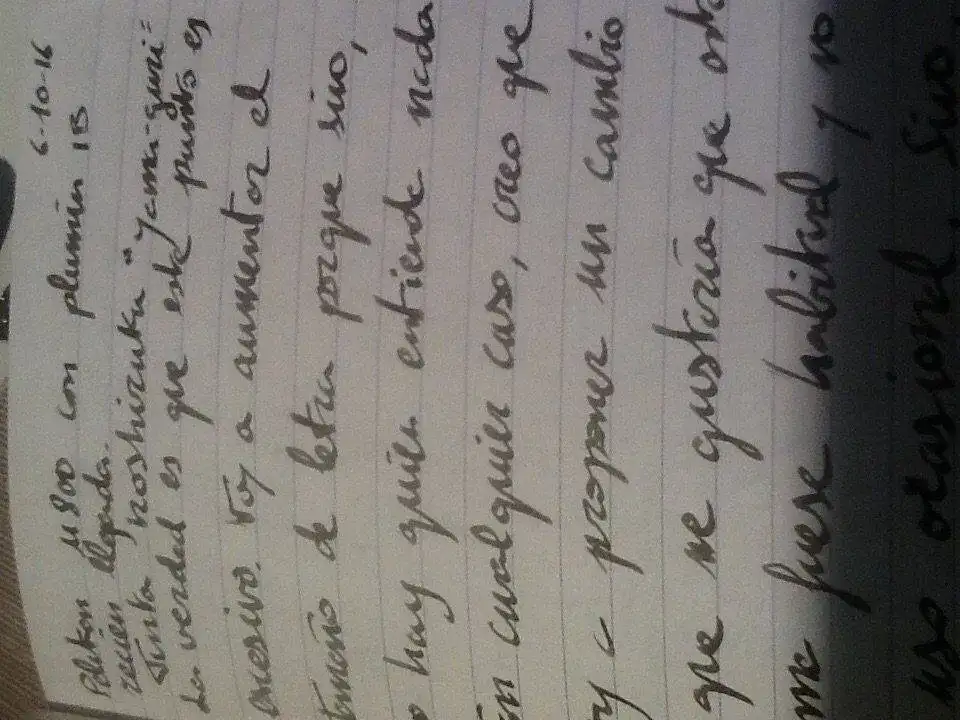 6-10-16
Pelikan M800 con plumín IB
recién llegada.
Tinta noshizuku "yama-guri=
La verdad es que está punto es
excesivo. Voy a aumentar el
tamaño de letra porque sino,
o hay quien entiende nada
n cualquier caso, creo que
y a proponer un cambio
que me gustaría que est
me fuese habitual y no
uso ocasional. Sino